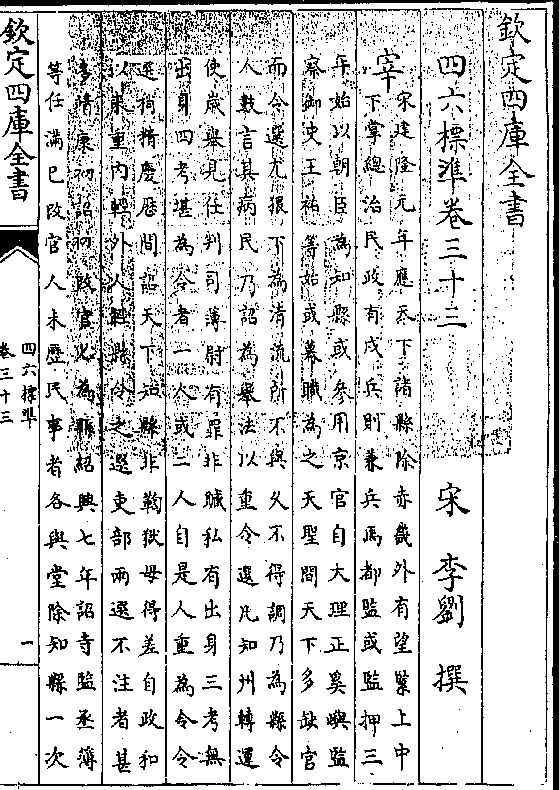 欽定四庫全書
四六標準卷三十三
宋 李劉 撰
宰
宋建隆元年應天下諸縣除赤畿外有望緊上中
下掌總治民政有戍兵則兼兵馬都監或監押三
年始以朝臣為知縣或參用京官自大理正奚嶼監
察御史王祐等始或幕職為之天聖間天下多缺官
而令選尤猥下為清流所不與久不得調乃為縣令
人數言其病民乃詔為舉法以重令選凡知州轉運
使歲舉見任判司薄尉有罪非贓私有出身三考無
出身四考堪為令者一人或二人自是人重為令令
選稍精慶歷間詔天下知縣非鞫獄毋得差自政和
以來重内輕外人輕縣令之選吏部兩選不注者甚
多靖康初詔初改官必為縣紹興七年詔寺監丞簿
等任滿已改官人未歷民事者各與堂除知縣一次
欽定四庫全書
四六標準
卷三十三
一